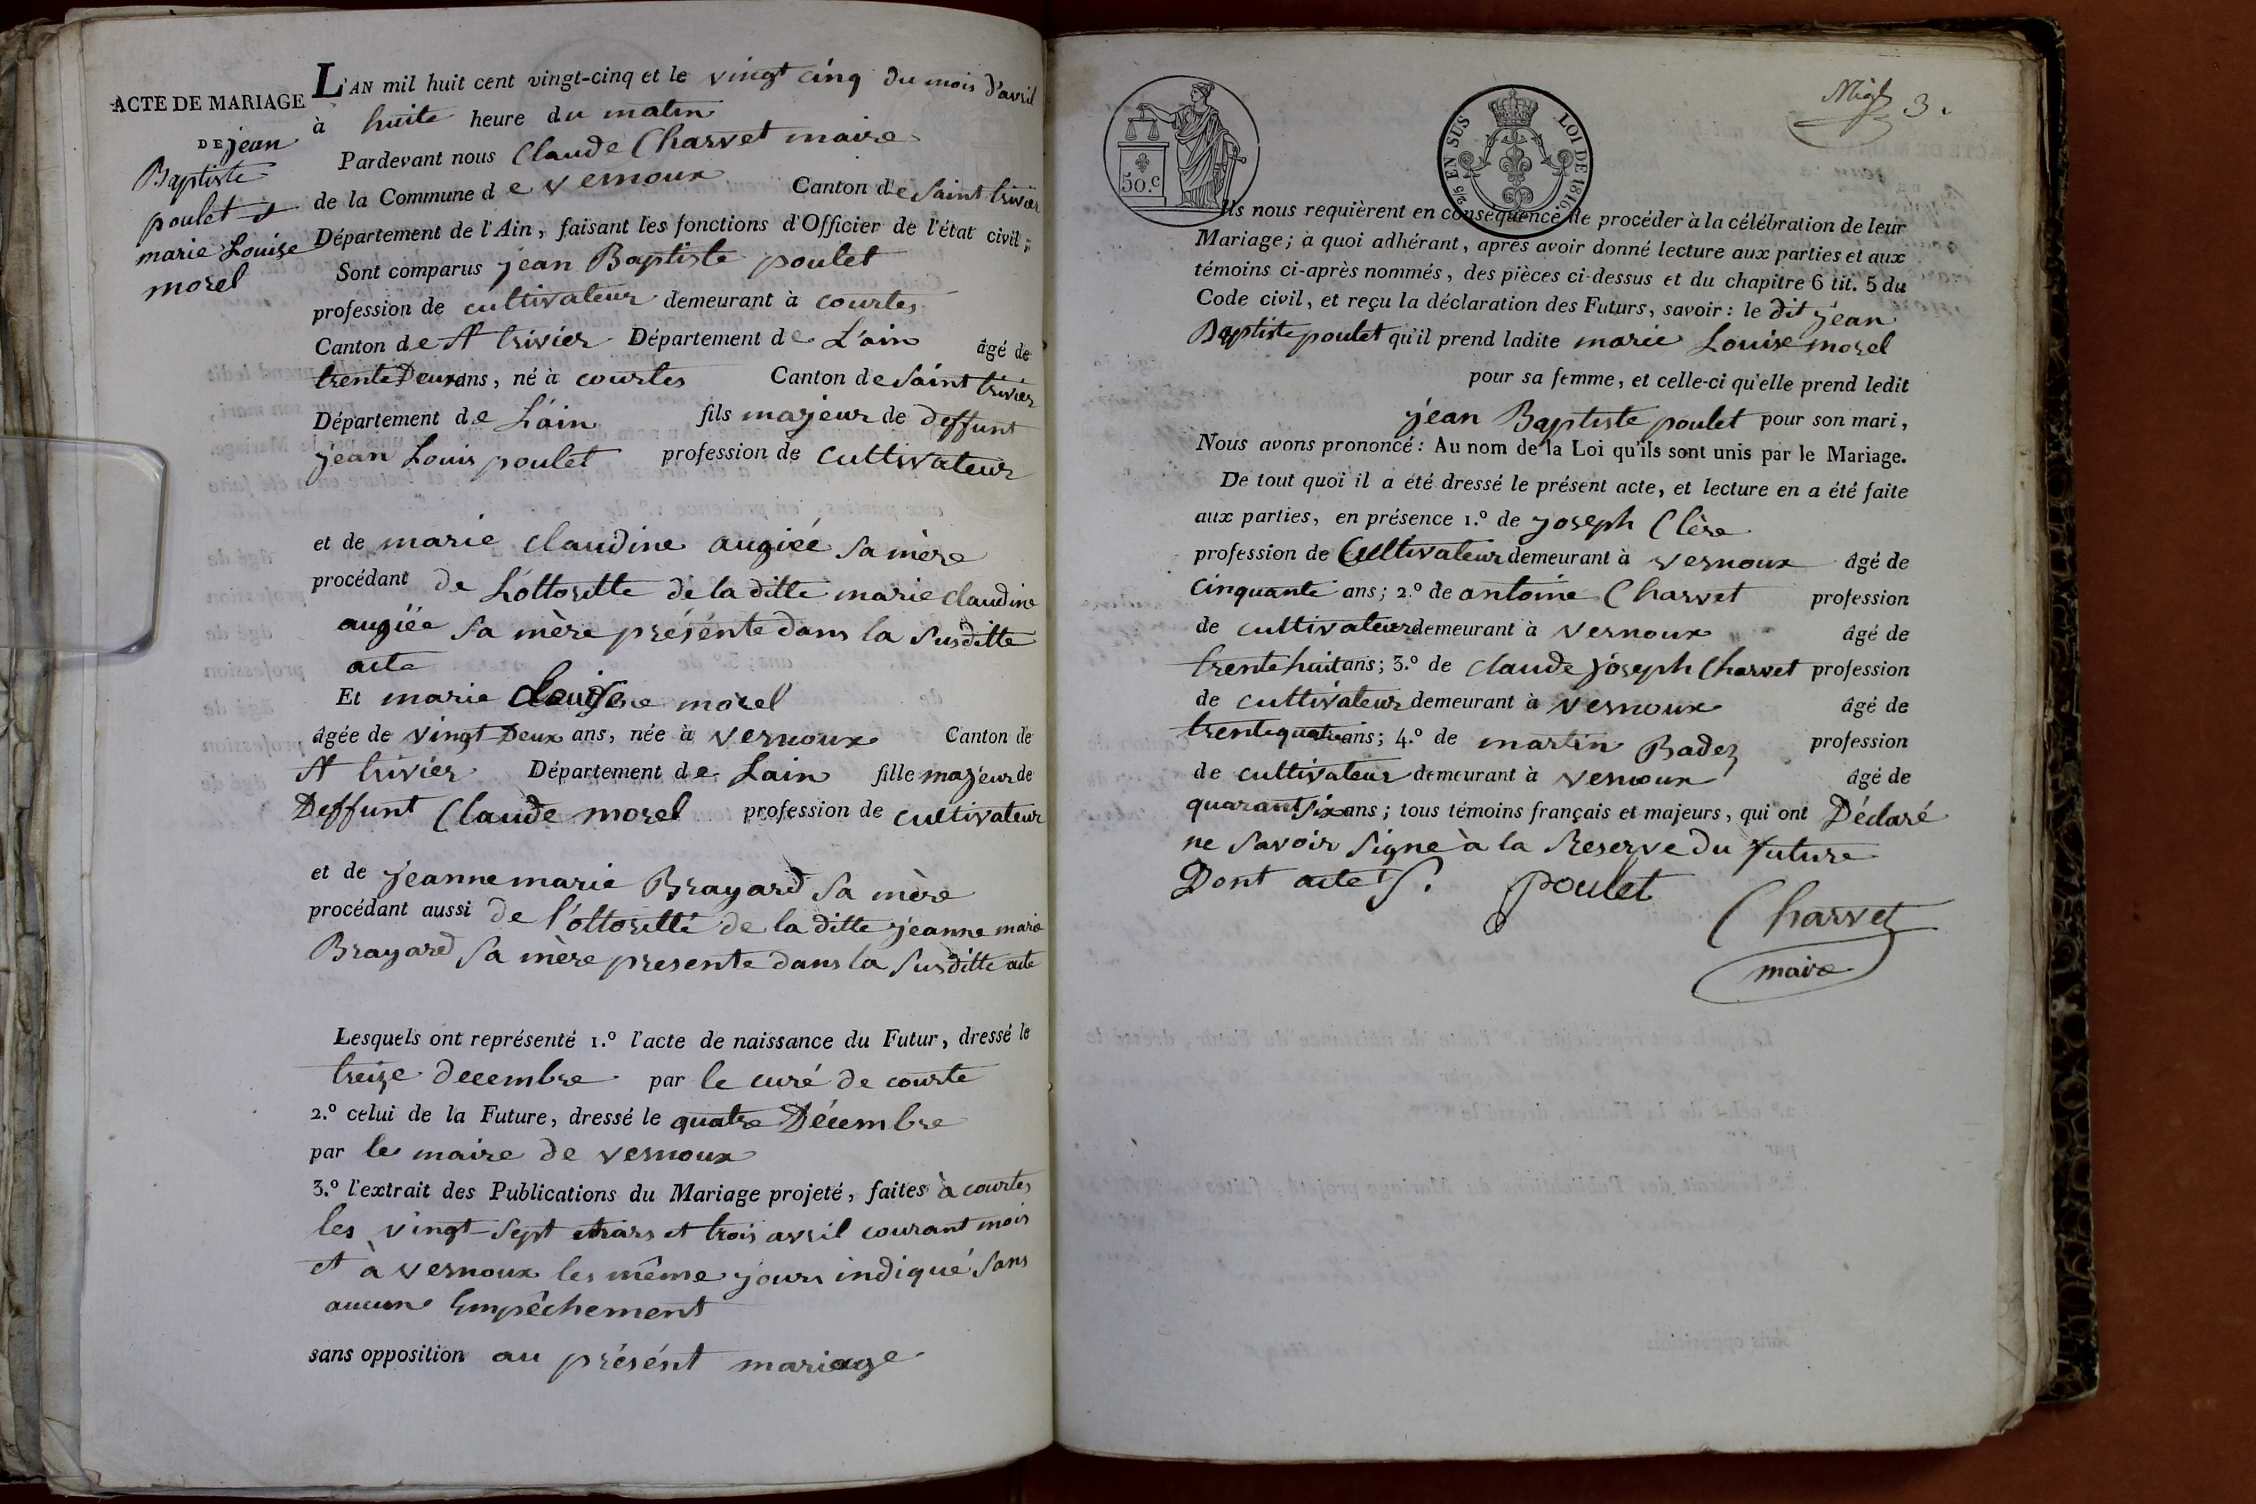 ACTE DE MARIAGE
DE jean
Baptiste
poulet et
marie Louise
morel
L'AN mil huit cent vingt-cinq et le vingt cinq du mois d'avril
à huite heure du matin
Pardevant nous Claude Charvet maire
de la Commune de vernoux Canton de Saint trivier
Département de l'Ain, faisant les fonctions d'Officier de l'état civil;
Sont comparus jean Baptiste poulet
profession de cultivateur demeurant à courtes
Canton de St trivier Département de L'ain âgé de
trente Deux ans, né à courtes Canton de Saint trivier
Département de L'ain fils majeur de deffunt
jean Louis poulet profession de cultivateur
et de marie claudine augiée sa mère
procédant de L'ottoritte de la ditte marie claudine
augiée sa mère présénte dans la susditte
acte
Et marie Louise morel
âgée de vingt Deux ans, née à vernoux Canton de
St trivier Département de Lain fille majeur de
Deffunt Claude morel profession de cultivateur
et de jeanne marie Brayard sa mère
procédant aussi de l'ottoritté de la ditte jeanne marie
Brayard sa mère presente dans la susditte acte
Lesquels ont représenté 1.º l'acte de naissance du Futur, dressé le
treize decembre par le curé de courte
2.º celui de la Future, dressé le quatre Décembre
par le maire de vernoux
3.º l'extrait des Publications du Mariage projeté, faites à courtes
les vingt-sept mars et trois avril courant mois
et à vernoux les même jours indiqué sans
aucun Empêchement
sans opposition au présént mariage
3.
50.c
2/5 EN SUS LOI DE 1816.
Ils nous requièrent en conséquence de procéder à la célébration de leur
Mariage; à quoi adhérant, après avoir donné lecture aux parties et aux
témoins ci-après nommés, des pièces ci-dessus et du chapitre 6 tit. 5 du
Code civil, et reçu la déclaration des Futurs, savoir: le dit jean
Baptiste poulet qu'il prend ladite marie Louise morel
pour sa femme, et celle-ci qu'elle prend ledit
jean Baptiste poulet pour son mari,
Nous avons prononcé: Au nom de la Loi qu'ils sont unis par le Mariage.
De tout quoi il a été dressé le présent acte, et lecture en a été faite
aux parties, en présence 1.º de joseph Clère
profession de Cultivateur demeurant à vernoux âgé de
cinquante ans; 2.º de antoine Charvet profession
de cultivateur demeurant à vernoux âgé de
trente huit ans; 3.º de claude joseph Charvet profession
de cultivateur demeurant à vernoux âgé de
trente quatre ans; 4.º de martin Badez profession
de cultivateur demeurant à vernoux âgé de
quarant six ans; tous témoins français et majeurs, qui ont Déclaré
ne savoir signe à la Reserve du future
Dont acte. poulet
Charvet
maire